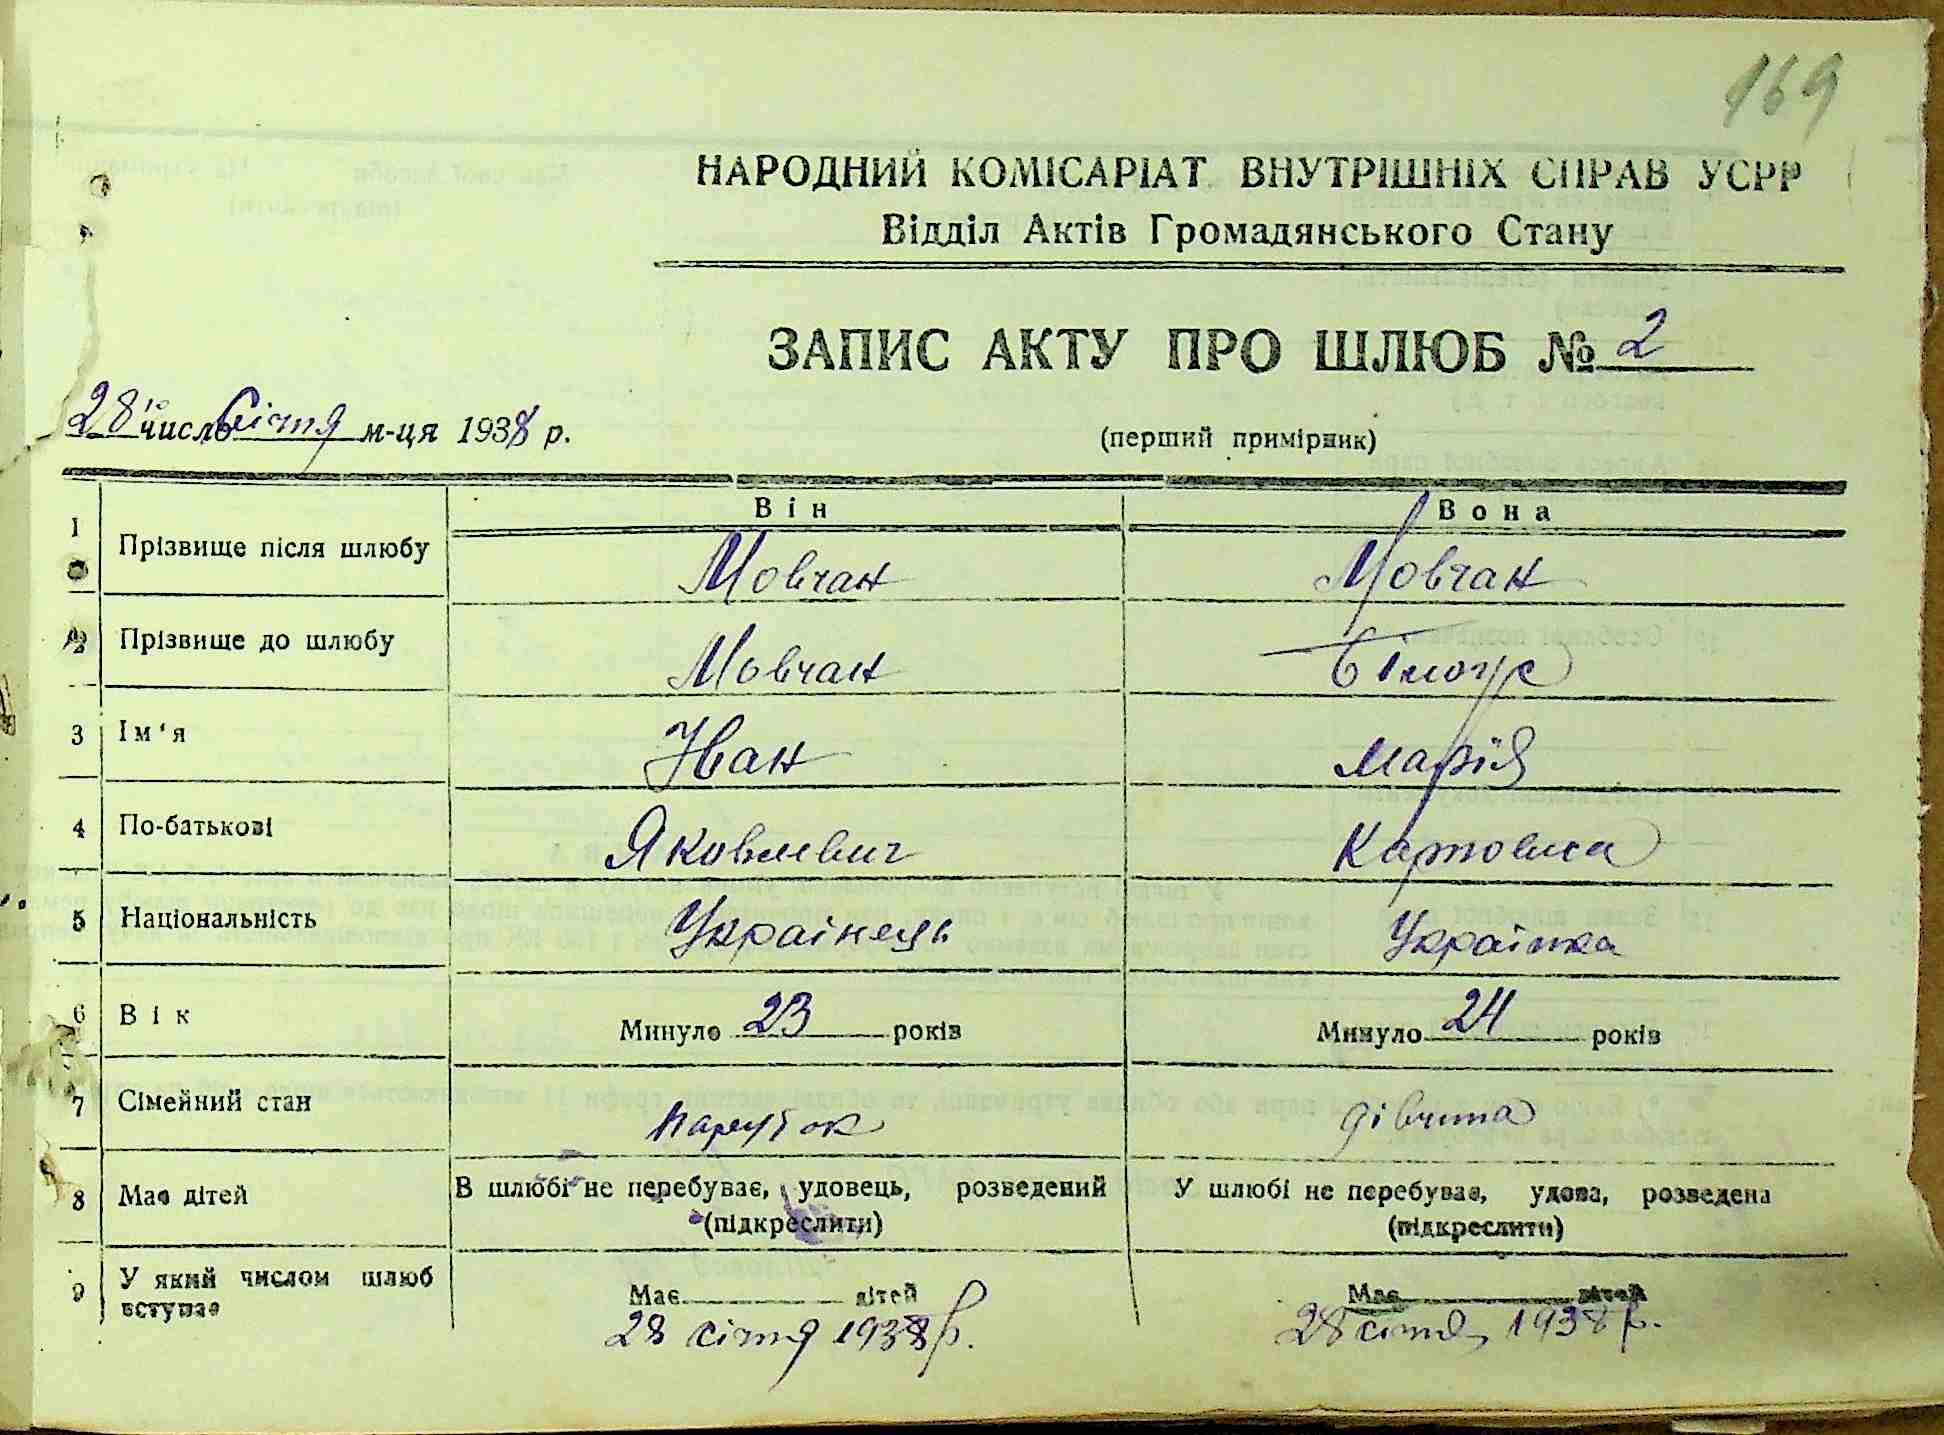 169
НАРОДНИЙ КОМІСАРІАТ ВНУТРІШНІХ СПРАВ УСРР
Відділ Актів Громадянського Стану
ЗАПИС АКТУ ПРО ШЛЮБ № 2
28 число Січня м-ця 1938 р.
(перший примірник)
Він Вона
1 Прізвище після шлюбу Мовчан Мовчан
2 Прізвище до шлюбу Мовчан
3 Ім'я Іван Марія
4 По-батькові Яковлевич Карповна
5 Національність Українець Українка
6 Вік Минуло 23 років Минуло 24 років
7 Сімейний стан парубок дівчина
8 Має дітей В шлюбі не перебуває, удовець, розведений У шлюбі не перебуває, удова, розведена
(підкреслити) (підкреслити)
9 У який числом шлюб вступає Має дітей Має дітей
28 січня 1938 р. 28 січня 1938 р.